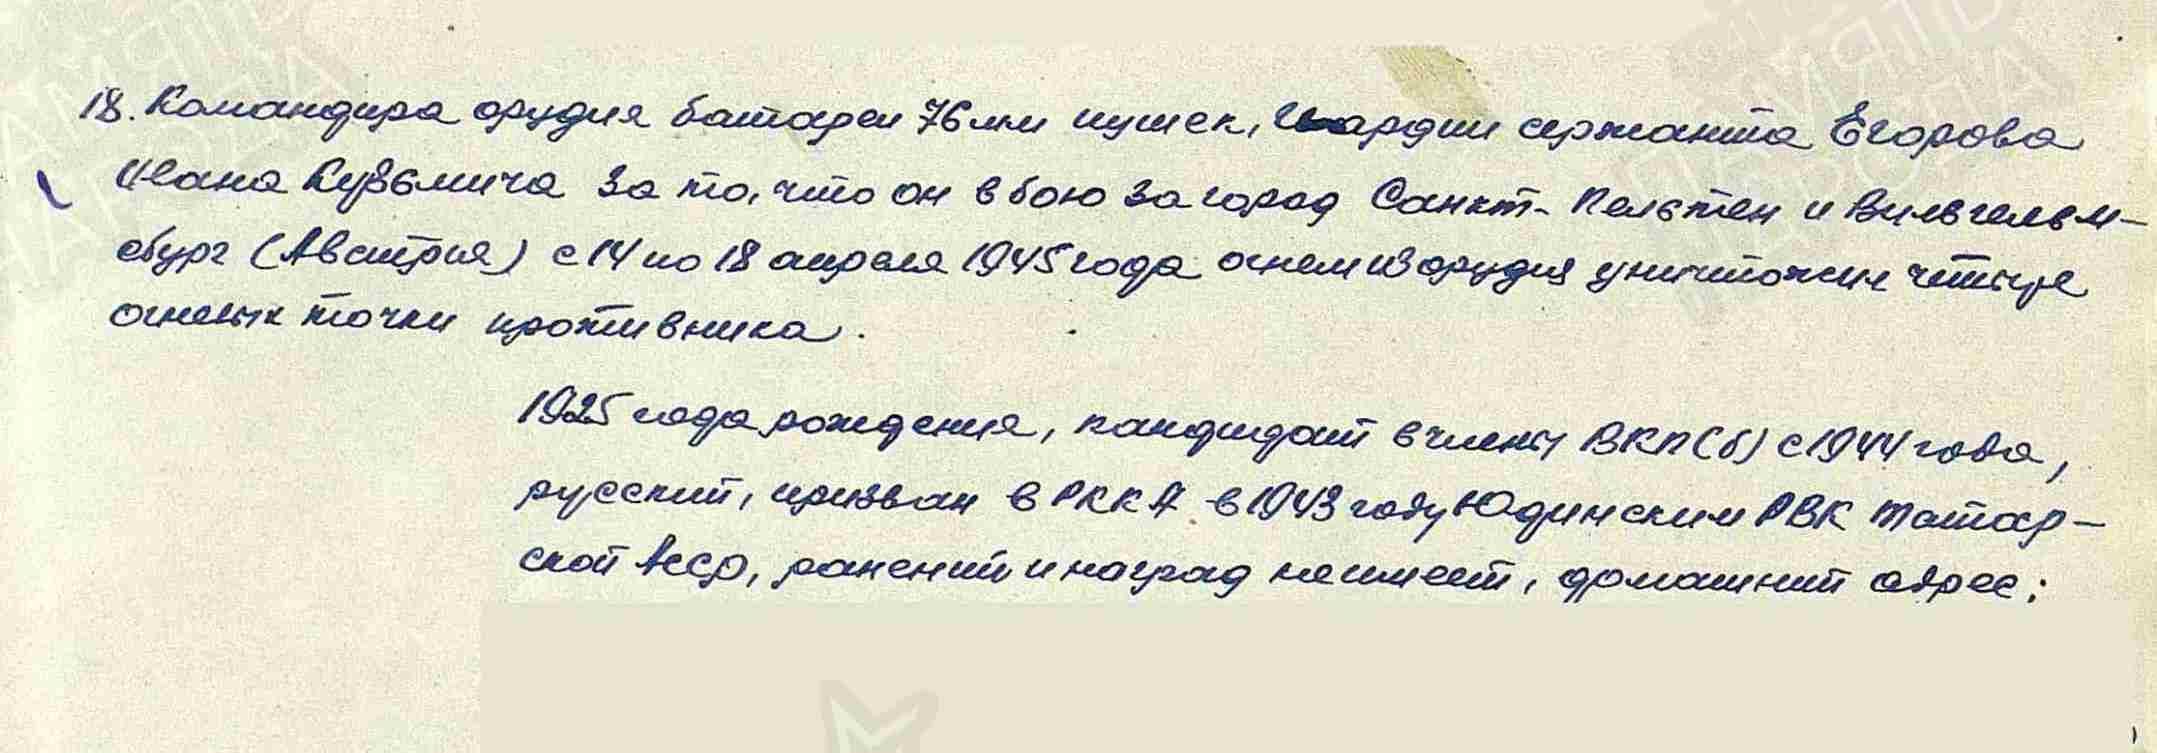 18. Командира орудия батареи 76 мм пушек, Гвардии сержанта Егорова
Ивана Кузьмича за то, что он в бою за город Санкт-Пельтен и Вильгельм-
сбург (Австрия) с 14 по 18 апреля 1945 года огнем из орудия уничтожил четыре
огневых точки противника.
1925 года рождения, кандидат в члены ВКП(б) с 1944 года,
русский, призван в РККА в 1943 году Юдинским РВК Татар-
ской АССР, ранений и наград не имеет, домашний адрес: